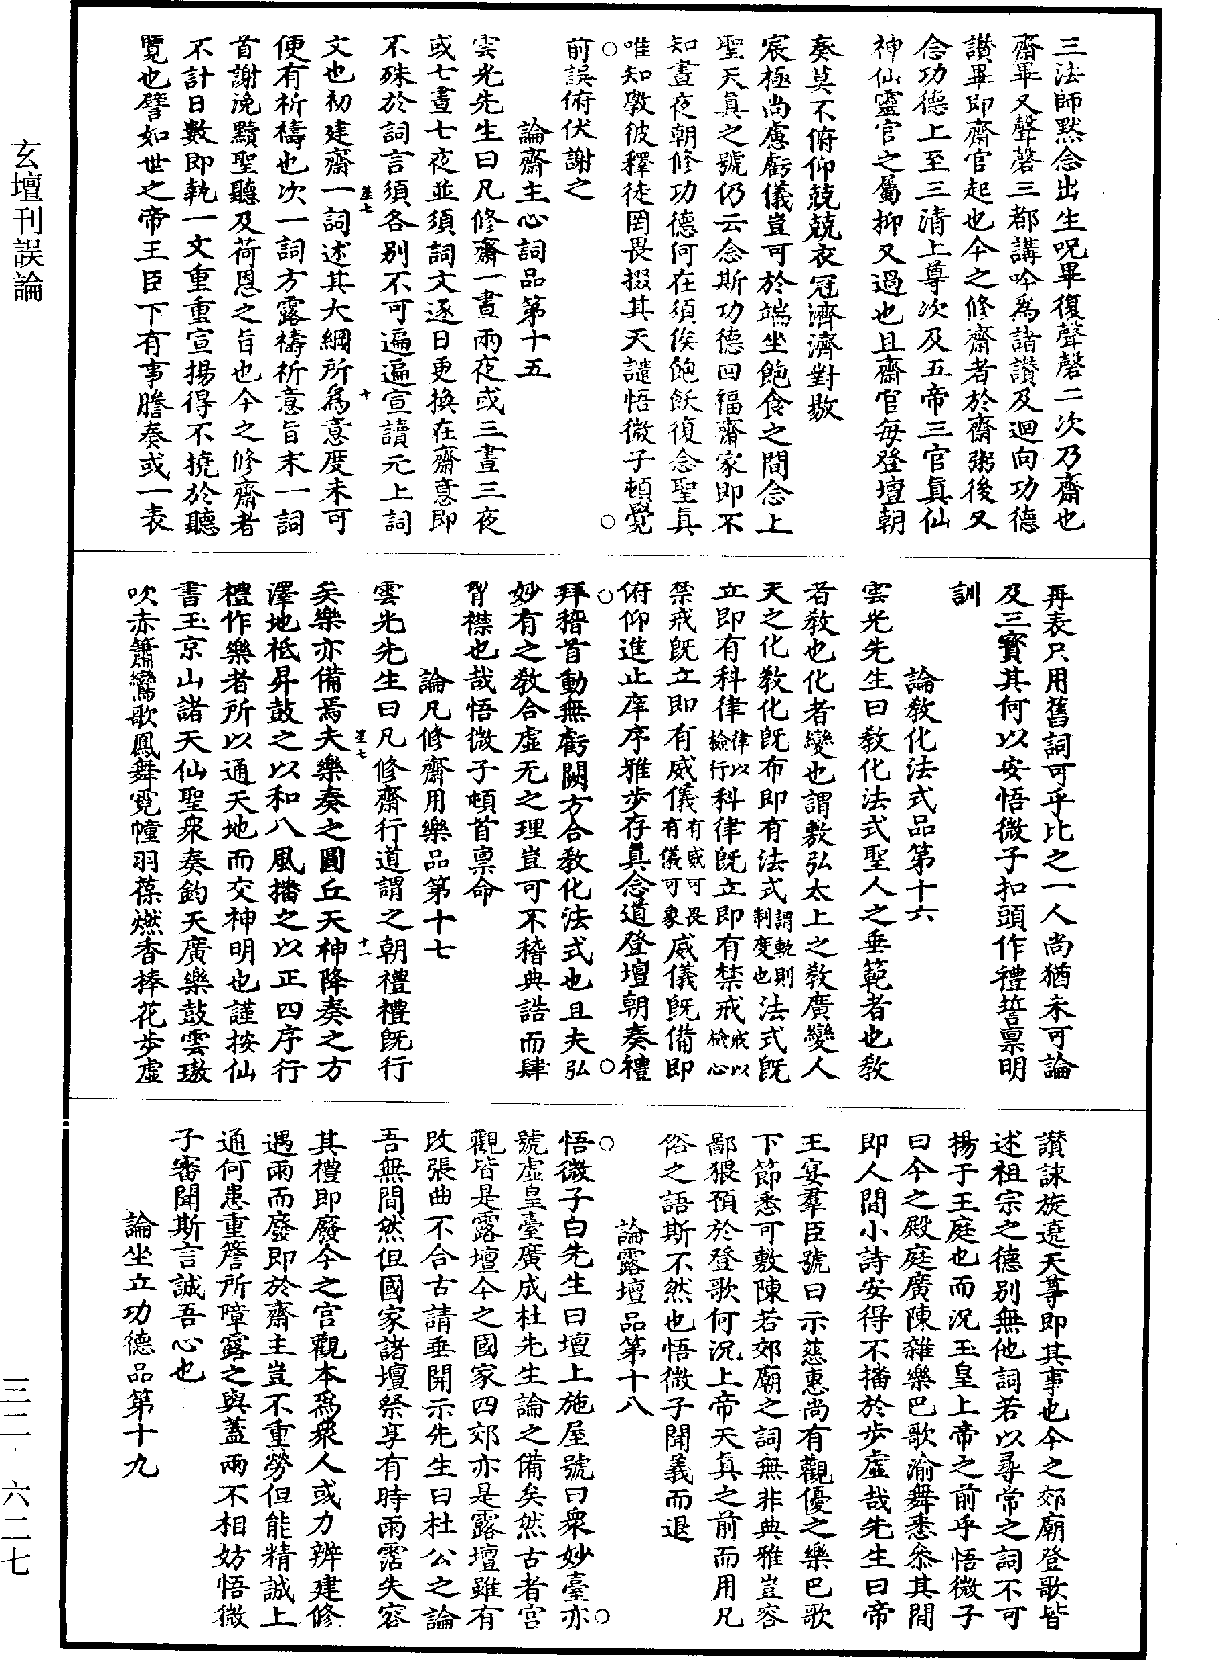 玄壇刊誤論
三法師黙念出生呪畢復聲磬二次乃齋也
齋畢又聲磬三都講吟爲諸讃及迴向功德
讃畢即齋官起也今之修齋者於齋粥後又
念功德上至三清上尊次及五帝三官眞仙
神仙靈官之屬抑又過也且齋官每登壇朝
奏莫不俯仰兢兢衣冠濟濟對敭
宸極尚慮虧儀豈可於端坐飽食之間念上
聖天眞之號仍云念斯功德回福齋家即不
知晝夜朝修功德何在須俟飽飫復念聖眞
唯知斆彼釋徒罔畏掇其天譴悟微子頓覺
前誤俯伏謝之
論齋主心詞品第十五
雲光先生曰凡修齋一晝兩夜或三晝三夜
或七晝七夜並須詞文逐日更換在齋意即
不殊於詞言須各別不可遍遍宣讀元上詞
文也初建齋一詞述其大綱所爲意度末可
便有祈禱也次一詞方露禱祈意旨末一詞
首謝浼黷聖聽及荷恩之旨也今之修齋者
不計日數即執一文重重宣揚得不撓於聽
覽也譬如世之帝王臣下有事謄奏或一表
星七
十
再表只用舊詞可乎比之一人尚猶未可論
及三寳其何以安悟微子扣頭作禮誓禀明
訓
論教化法式品第十六
雲光先生曰教化法式聖人之垂範者也教
者教也化者變也謂敷弘太上之教廣變人
天之化教化旣布即有法式謂軌則制度也法式旣
立即有科律律以檢行科律旣立即有禁戒戒以檢心
禁戒旣立即有威儀有威可畏有儀可象威儀旣備即
俯仰進止庠序雅步存眞念道登壇朝奏禮
拜稽首動無虧闕方合教化法式也且夫弘
妙有之教合虛无之理豈可不稽典誥而肆
胷襟也哉悟微子頓首禀命
論凡修齋用樂品第十七
雲光先生曰凡修齋行道謂之朝禮禮旣行
矣樂亦備焉夫樂奏之圓丘天神降奏之方
澤地祗昇鼓之以和八風播之以正四序行
禮作樂者所以通天地而交神明也謹按仙
書玉京山諸天仙聖衆奏鈞天廣樂鼓雲璈
吹赤簫鸞歌鳳舞霓幢羽葆燃香捧花步虛
星七
十一
讃詠旋遶天尊即其事也今之郊廟登歌皆
述祖宗之德別無他詞若以尋常之詞不可
揚于王庭也而況玉皇上帝之前乎悟微子
曰今之殿庭廣陳雜樂巴歌渝舞悉叅其間
即人間小詩安得不播於步虛哉先生曰帝
王宴羣臣號曰示慈惠尚有觀優之樂巴歌
下節悉可敷陳若郊廟之詞無非典雅豈容
鄙猥預於登歌何況上帝天眞之前而用凡
俗之語斯不然也悟微子聞義而退
論露壇品第十八
悟微子白先生曰壇上施屋號曰衆妙臺亦
號虛皇臺廣成杜先生論之備矣然古者宮
觀皆是露壇今之國家四郊亦是露壇雖有
改張曲不合古請垂開示先生曰杜公之論
吾無間然但國家諸壇祭享有時雨霑失容
其禮即廢今之宮觀本爲衆人或力辦建修
遇雨而廢即於齋主豈不重勞但能精誠上
通何患重簷所障露之與蓋兩不相妨悟微
子審聞斯言誠吾心也
論坐立功德品第十九
三二・六二七